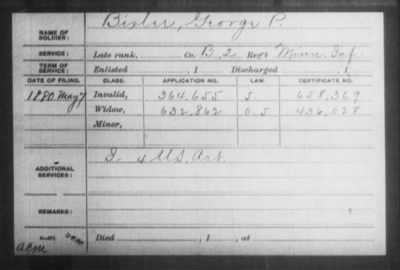 NAME OF SOLDIER: Bixler, George P.
SERVICE: Late rank, Co. B, 2 Reg't Minn. Inf.
TERM OF SERVICE: Enlisted , 1 Discharged , 1
DATE OF FILING. CLASS. APPLICATION NO. LAW. CERTIFICATE NO.
1880 May 7 Invalid, 364,655 S. 658,369
Widow, 632,862 O.S. 436,078
Minor,
ADDITIONAL SERVICES: I 4 U.S. Art.
REMARKS:
Died , 1 , at